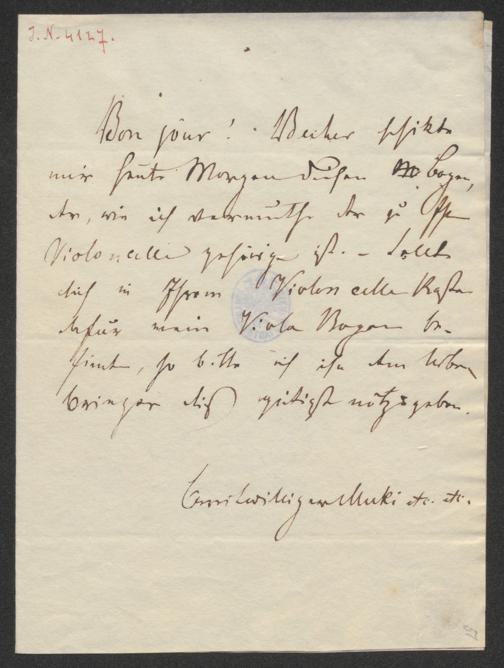 J.N. 4127.
Bon jour! Becher schikte
mir heute Morgen diesen Bogen,
der, wie ich vermuthe der zu
Violoncelle gehörige ist. – Sollte
sich in Ihrem Violoncelle Kasten
dafür mein Viola Bogen be-
finden, so bitte ich ihn dem Ueber-
bringer dieß gütigst
Bereitwilliger Muki etc. etc.